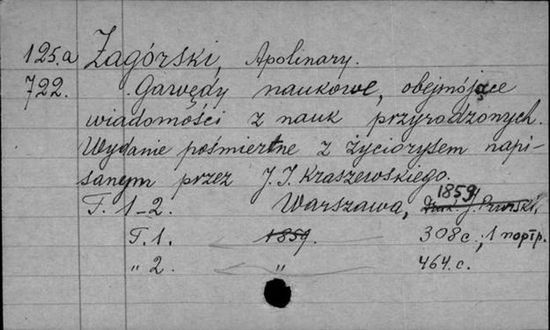 125.a Zagórski, Apolinary.
722. Gawędy naukowe, obejmójące
wiadomości z nauk przyrodzonych.
Wydanie pośmiertne z życiorysem napi-
sanym przez J. I. Kraszewskiego.
T. 1-2. Warszawa, 1859,
T. 1. 1859. 308 c., 1 портр.
" 2. " 464. c.